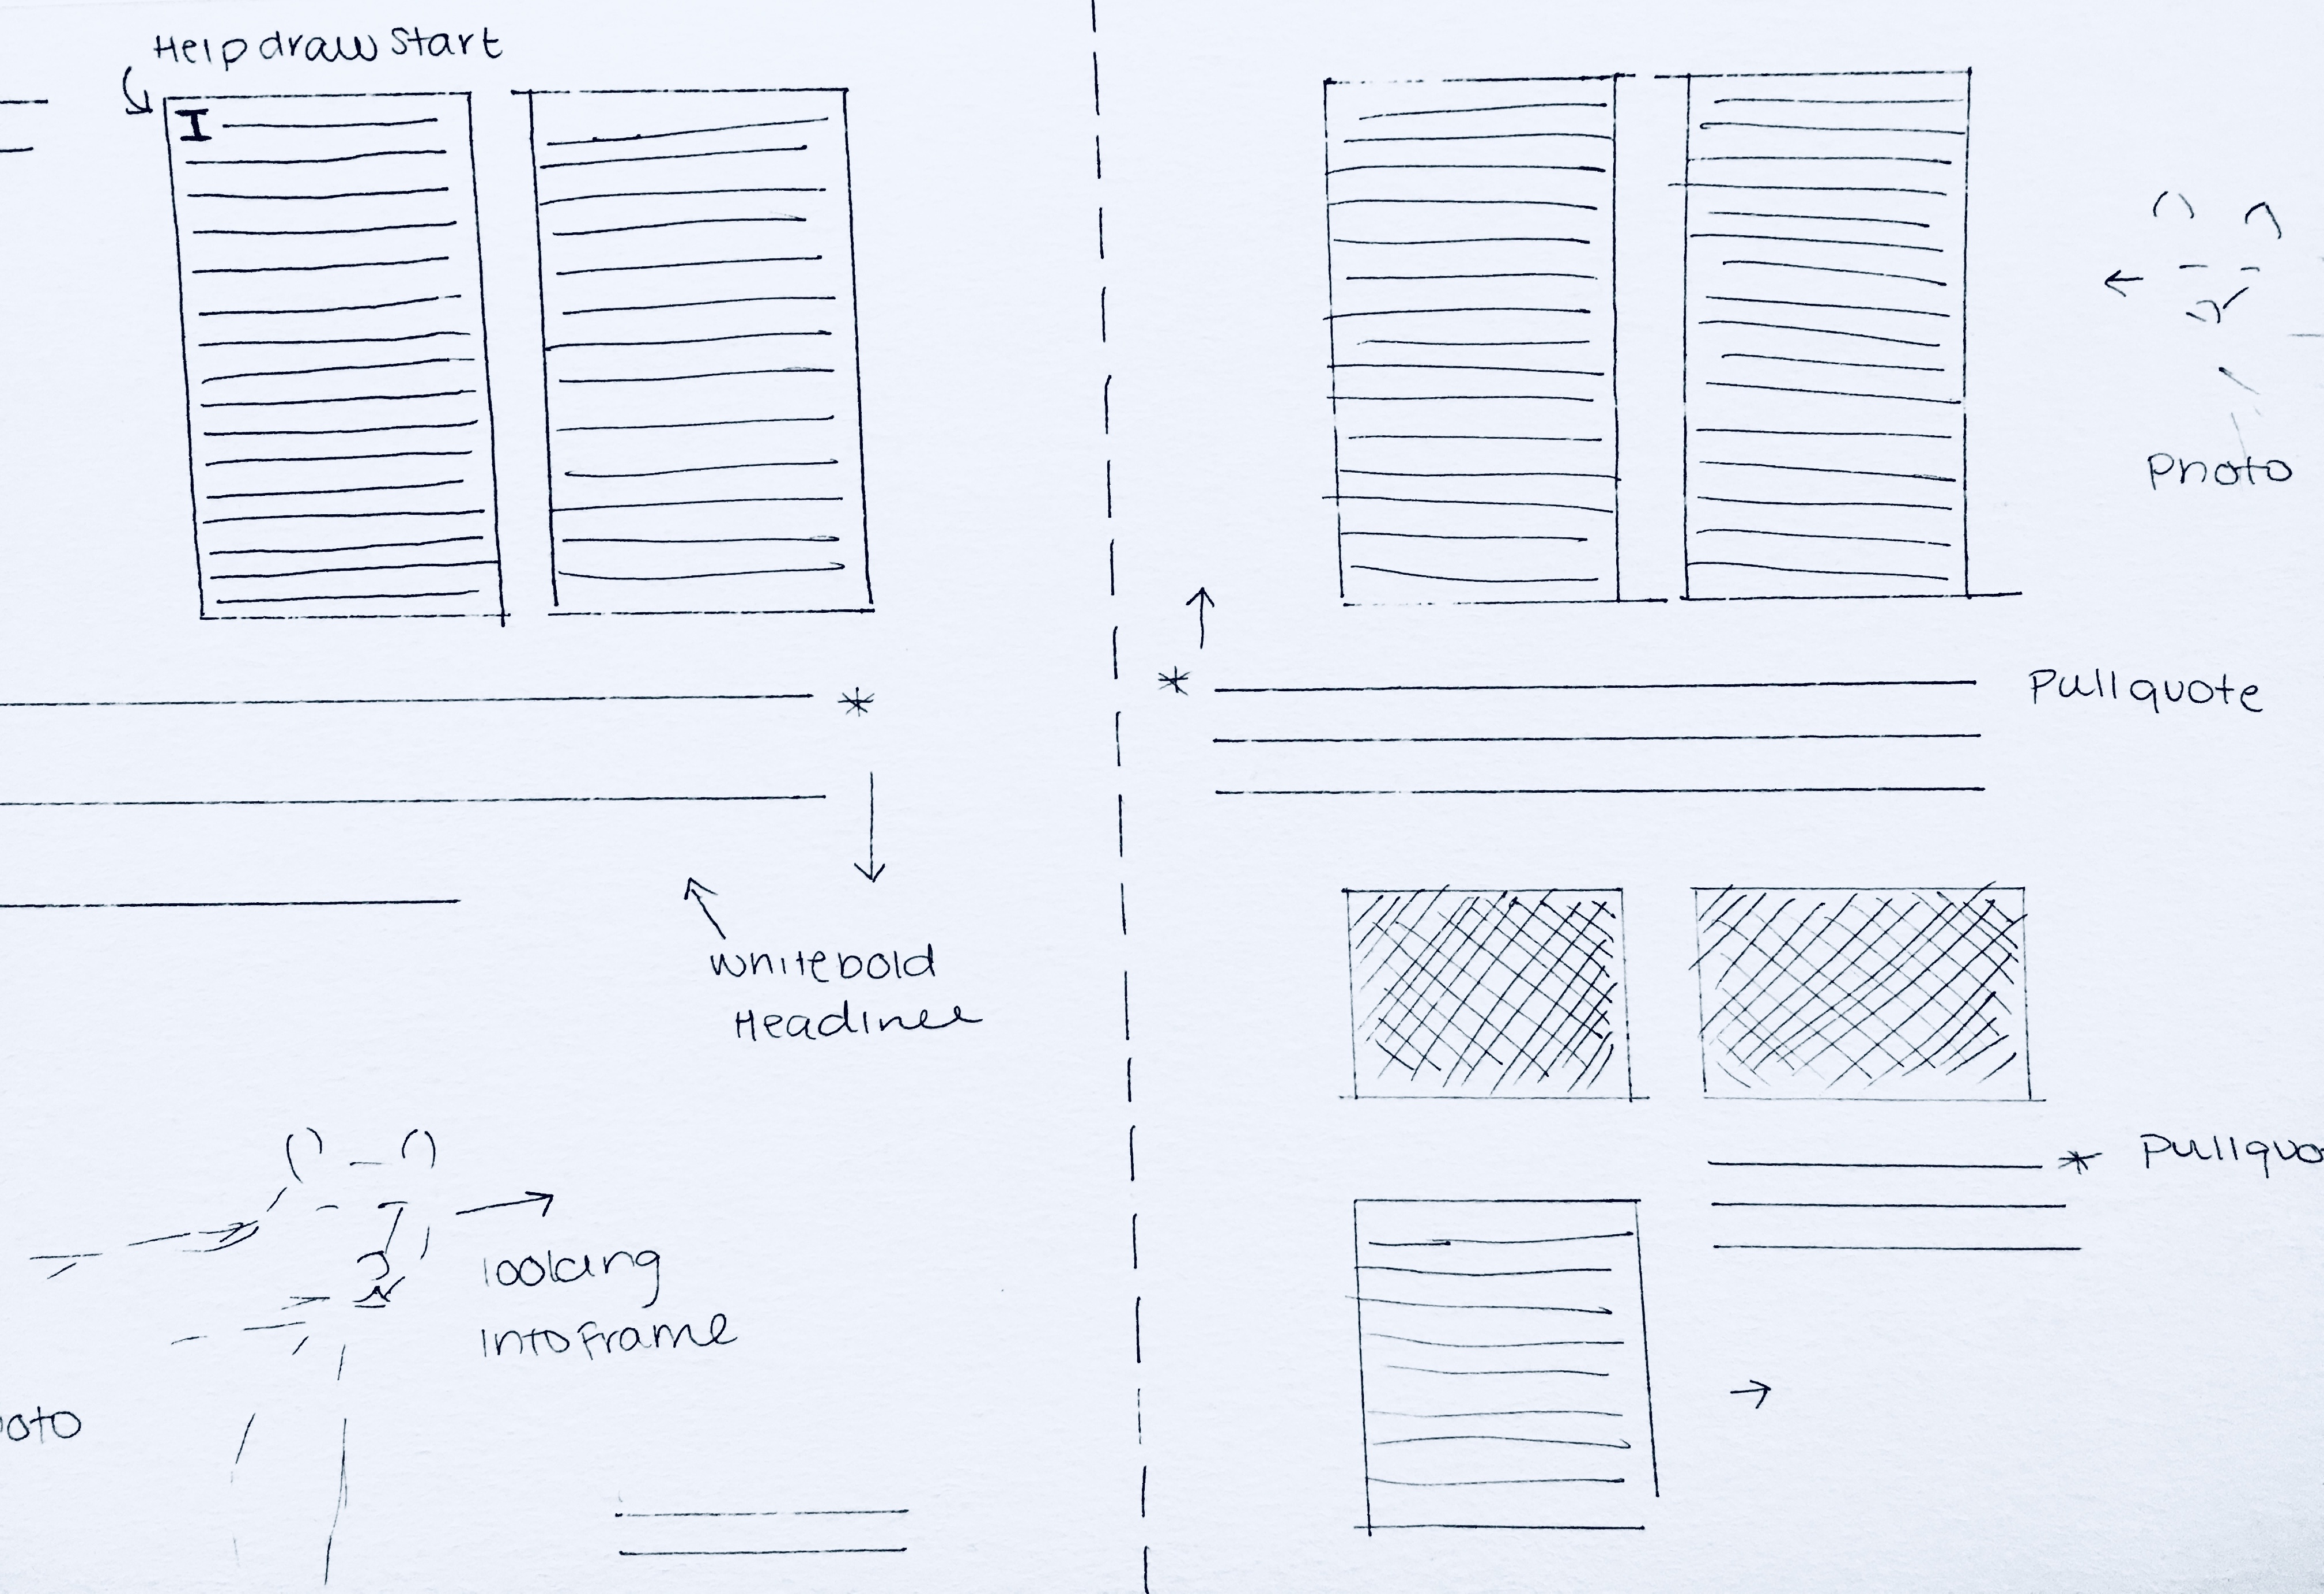 Help draw start
I
white bold
Headinee
looking
into frame
oto
Photo
Pullquote
Pullquo